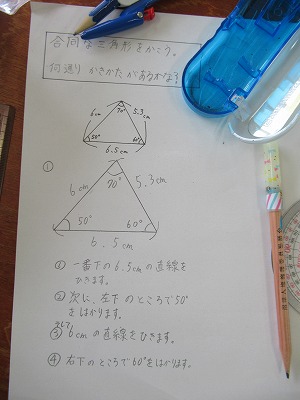 合同な三角形をかこう。
何通り かきかたがあるかな?
6cm
70°
5.3cm
50°
60°
6.5cm
①
6cm
70°
5.3cm
50°
60°
6.5cm
① 一番下の6.5cmの直線を
ひきます。
② 次に、左下のところで50°
をはかります。
そして
③ 6cmの直線をひきます。
④ 右下のところで60°をはかります。